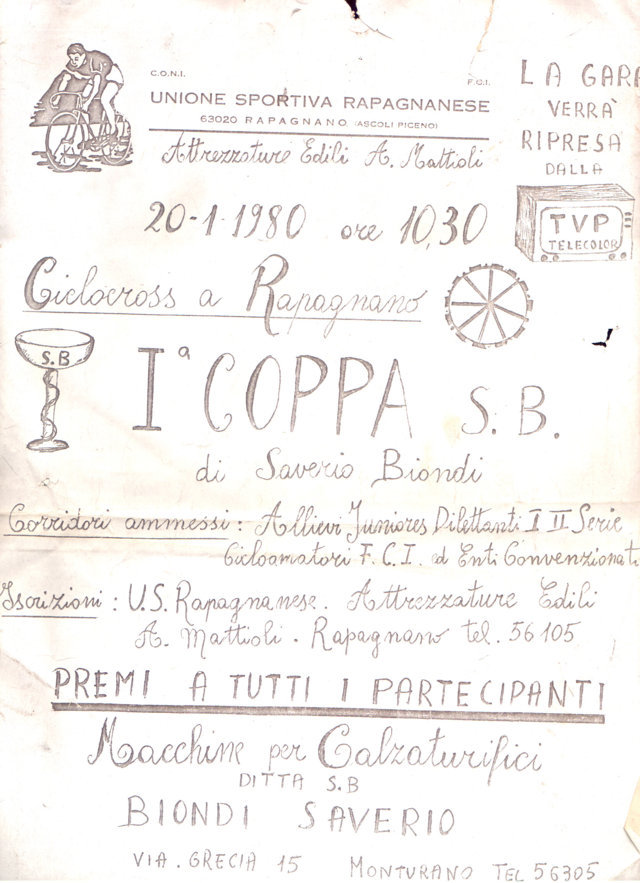 C.O.N.I. F.C.I.
UNIONE SPORTIVA RAPAGNANESE
63020 RAPAGNANO (ASCOLI PICENO)
Attrezzature Edili A. Mattioli
LA GARA
VERRÀ
RIPRESA
DALLA
TVP
TELECOLOR
20-1-1980 ore 10,30
Ciclocross a Rapagnano
S.B
Iª COPPA S.B.
di Saverio Biondi
Corridori ammessi: Allievi Juniores Dilettanti I II Serie
Cicloamatori F.C.I. ed Enti Convenzionati
Iscrizioni: U.S. Rapagnanese. Attrezzature Edili
A. Mattioli. Rapagnano tel. 56105
PREMI A TUTTI I PARTECIPANTI
Macchine per Calzaturifici
DITTA S.B
BIONDI SAVERIO
VIA. GRECIA 15 MONTURANO TEL 56305